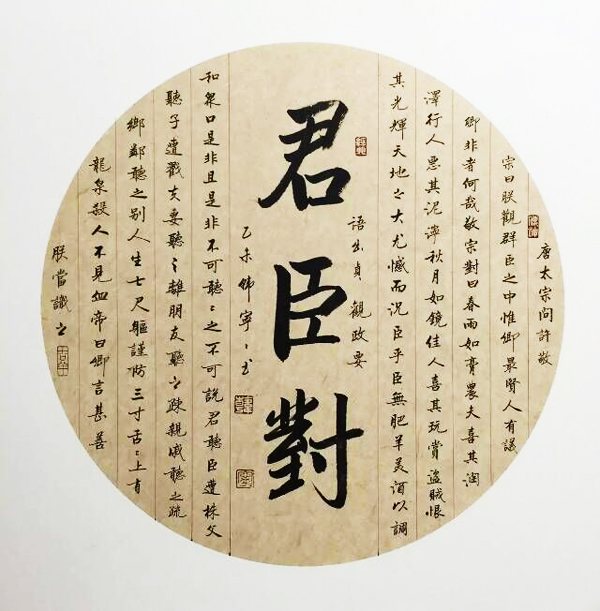 唐太宗問許敬
宗曰朕觀群臣之中惟卿最賢人有議
卿非者何哉敬宗對曰春雨如膏農夫喜其潤
澤行人惡其泥濘秋月如鏡佳人喜其玩賞盜賊恨
其光輝天地之大尤憾而況臣乎臣無肥羊美酒以調
語出貞觀政要
君臣對
乙未
和衆口是非且是非不可聽〻之不可說君聽臣遭株父
聽子遭戮夫妻聽〻離朋友聽之疎親戚聽之疏
鄉鄰聽之別人生七尺軀謹防三寸舌〻上有
龍泉殺人不見血帝曰卿言甚善
朕當識之